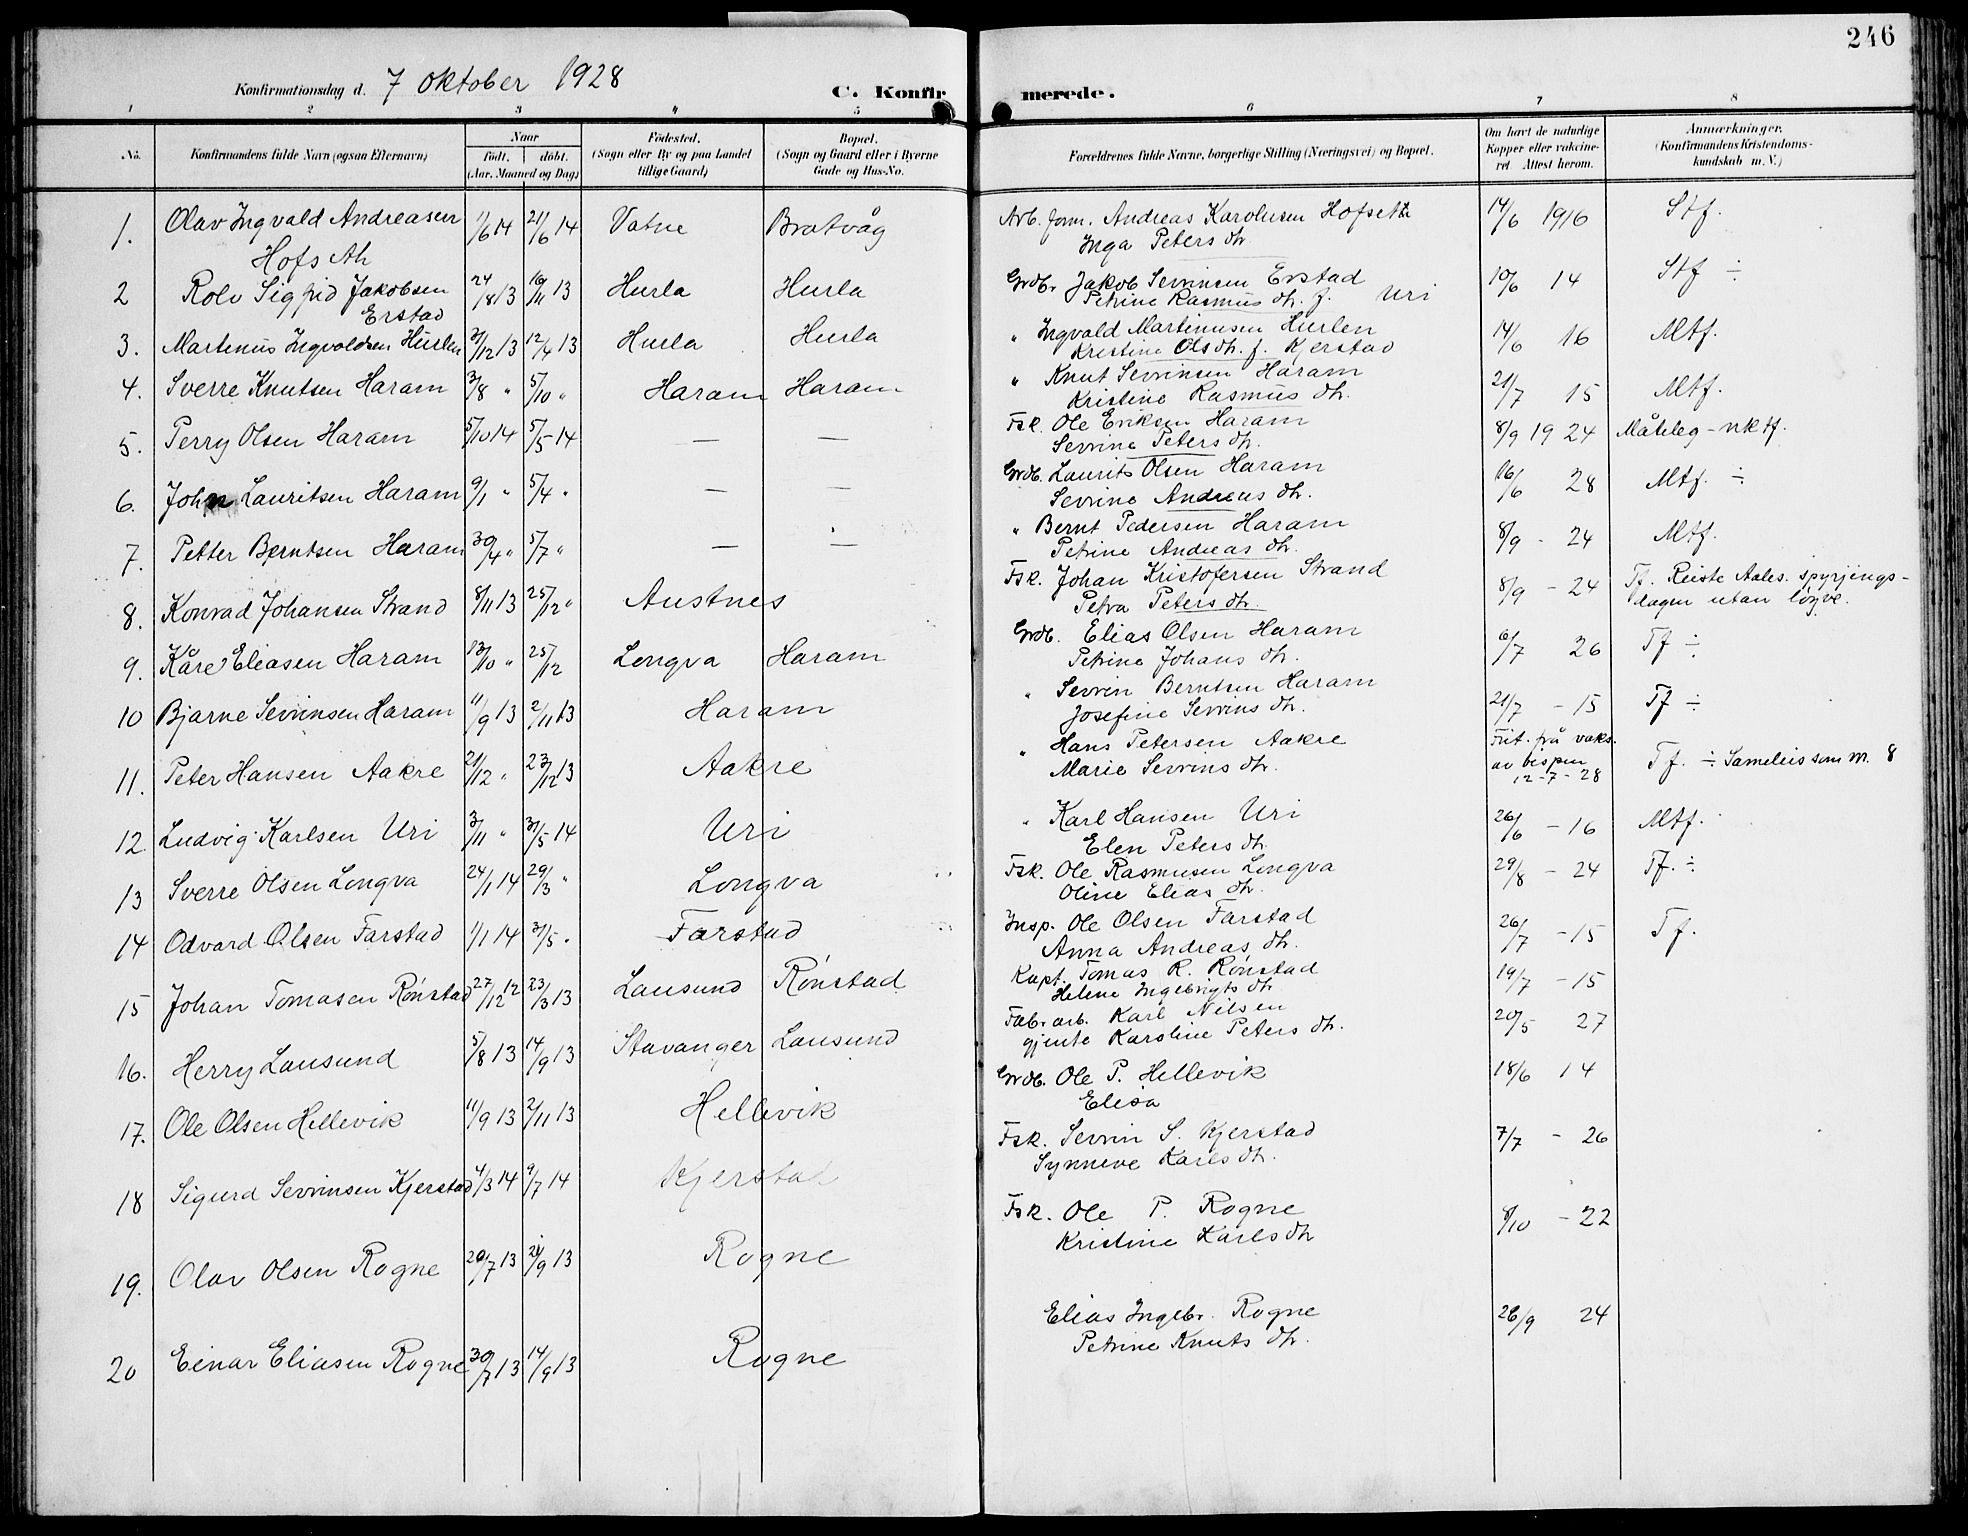 246
Konfirmationsdag d. 7 oktober 1928
C. Konfirmerede.
1 2 3 4 5 6 7 8
No. Konfirmandens fulde Navn (ogsaa Efternavn) Naar født. døbt. (Aar, Maaned og Dag) Fødested. (Sogn eller By og paa Landet tillige Gaard) Bopæl. (Sogn og Gaard eller i Byerne Gade og Hus-No. Forældrenes fulde Navne, borgerlige Stilling (Næringsvei) og Bopæl. Om havt de naturlige Kopper eller vakcineret Attest herom. Anmærkninger. (Konfirmandens Kristendomskundskab m. V.)
1. Olav Ingvald Andreasen 1/6 14 21/6 14 Vatne Bratvåg Arb. form. Andreas Karolusen Hofseth 14/6 1916 Stf.
Hofseth Inga Peters dtr.
2 Rolv Sigfrid Jakobsen 24/8 13 16/11 13 Hurla Hurla Grdbr. Jakob Sevrinsen Erstad 10/6 14 Stf ÷
Erstad Petrine Rasmus dtr. f. Uri
3. Martinus Ingvaldsen Hurlen 31/12 13 12/4 13 Hurla Hurla " Ingvald Martinusen Hurlen 14/6 16 Mtf.
Kristine Ols dtr. f. Kjerstad
4. Sverre Knutsen Haram 3/8 " 5/10 " Haram Haram " Knut Sevrinsen Haram 21/7 15 Mtf.
Kristine Rasmus dtr.
5. Perry Olsen Haram 5/10 14 5/5 14 — — Fsk. Ole Eriksen Haram 8/9 19 24 Måteleg - nktf.
Sevrine Peters dtr.
6. John Lauritsen Haram 9/1 " 5/4 " — — Grdb. Laurits Olsen Haram 16/6 28 Mtf. ÷
Sevrine Andreas dtr.
7. Petter Berntsen Haram 30/4 " 5/7 " — — " Bernt Pedersen Haram 8/9 - 24 Mtf.
Petrine Andreas dtr.
8. Konrad Johansen Strand 8/11 13 25/12 " Austnes Fsk. Johan Kristofersen Strand 8/9 - 24 Tf. Reiste Aales. spyrjings-
Petra Peters dtr. dagen utan løyve.
9. Kåre Eliasen Haram 13/10 " 25/12 Longva Haram Grdb. Elias Olsen Haram 6/7 26 Tf ÷
Petrine Johans dtr.
10 Bjarne Sevrinsen Haram 11/9 13 2/11 13 Haram " Sevrin Berntsen Haram 21/7 - 15 Tf ÷
Josefine Sevrins dtr.
11. Peter Hansen Aakre 21/12 " 23/12 13 Aakre " Hans Petersen Aakre Frit. frå vaks. Tf. ÷ Sameleis som nr. 8
Marie Sevrins dtr. av bispen
12-7-28
12 Ludvig Karlsen Uri 3/11 " 31/5 14 Uri " Karl Hansen Uri 26/6 - 16 Mtf.
Elen Peters dtr.
13 Sverre Olsen Longva 24/1 14 29/3 " Longva Fsk. Ole Rasmusen Longva 29/8 - 24 Tf. ÷
Oline Elias dtr.
14 Odvard Olsen Farstad 1/1 14 31/5 " Farstad Insp. Ole Olsen Farstad 26/7 - 15 Tf.
Anna Andreas dtr.
15 Johan Tomasen Rønstad 27/12 12 23/3 13 Lausund Rønstad Kapt. Tomas R. Rønstad 19/7 - 15
Helene Ingebrigts dtr
16. Herry Lausund 5/8 13 14/9 13 Stavanger Lausund Fabr. arb. Karl Nilsen 20/5 27
gjente Karoline Peters dtr.
17. Ole Olsen Hellevik 11/9 13 2/11 13 Hellevik Grdb. Ole P. Hellevik 18/6 14
Elisa
18 Sigurd Sevrinsen Kjerstad 4/3 14 9/7 14 Kjerstad Fsk. Sevrin S. Kjerstad 7/7 - 26
Synneve Karls dtr.
19. Olav Olsen Rogne 20/7 13 21/9 13 Rogne Fsk. Ole P. Rogne 8/10 - 22
Kristine Karls dtr
20 Einar Eliasen Rogne 30/7 13 14/9 13 Rogne Elias Ingebr. Rogne 26/9 24
Petrine Knuts dtr.